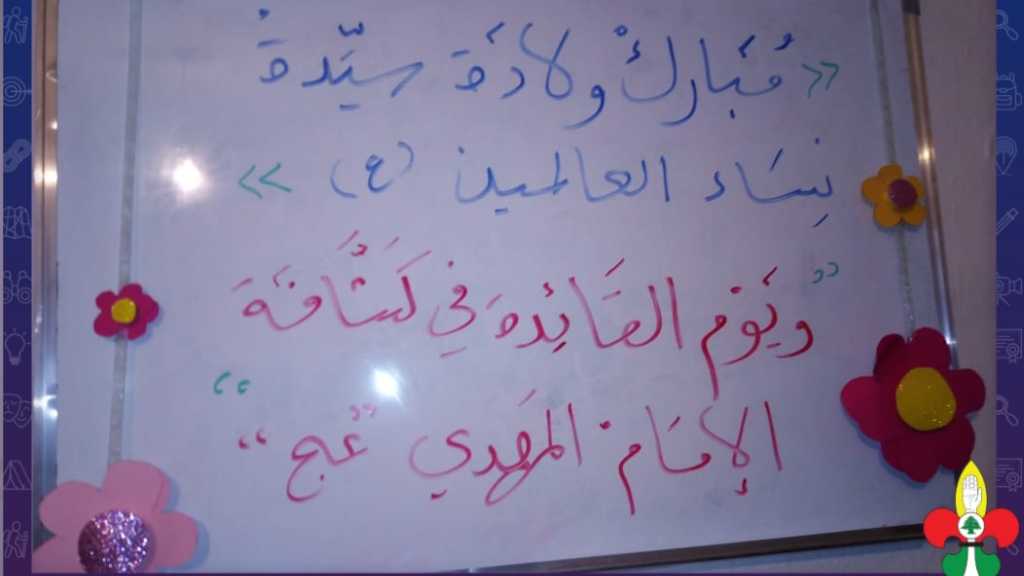 « مُبَارِكْ ولادَة سيِّدة
نِسَاء العالمين (ع) »
" ويَوْم القَائِدة في كَشَّافَة
الإمَام المَهدي "عج" "